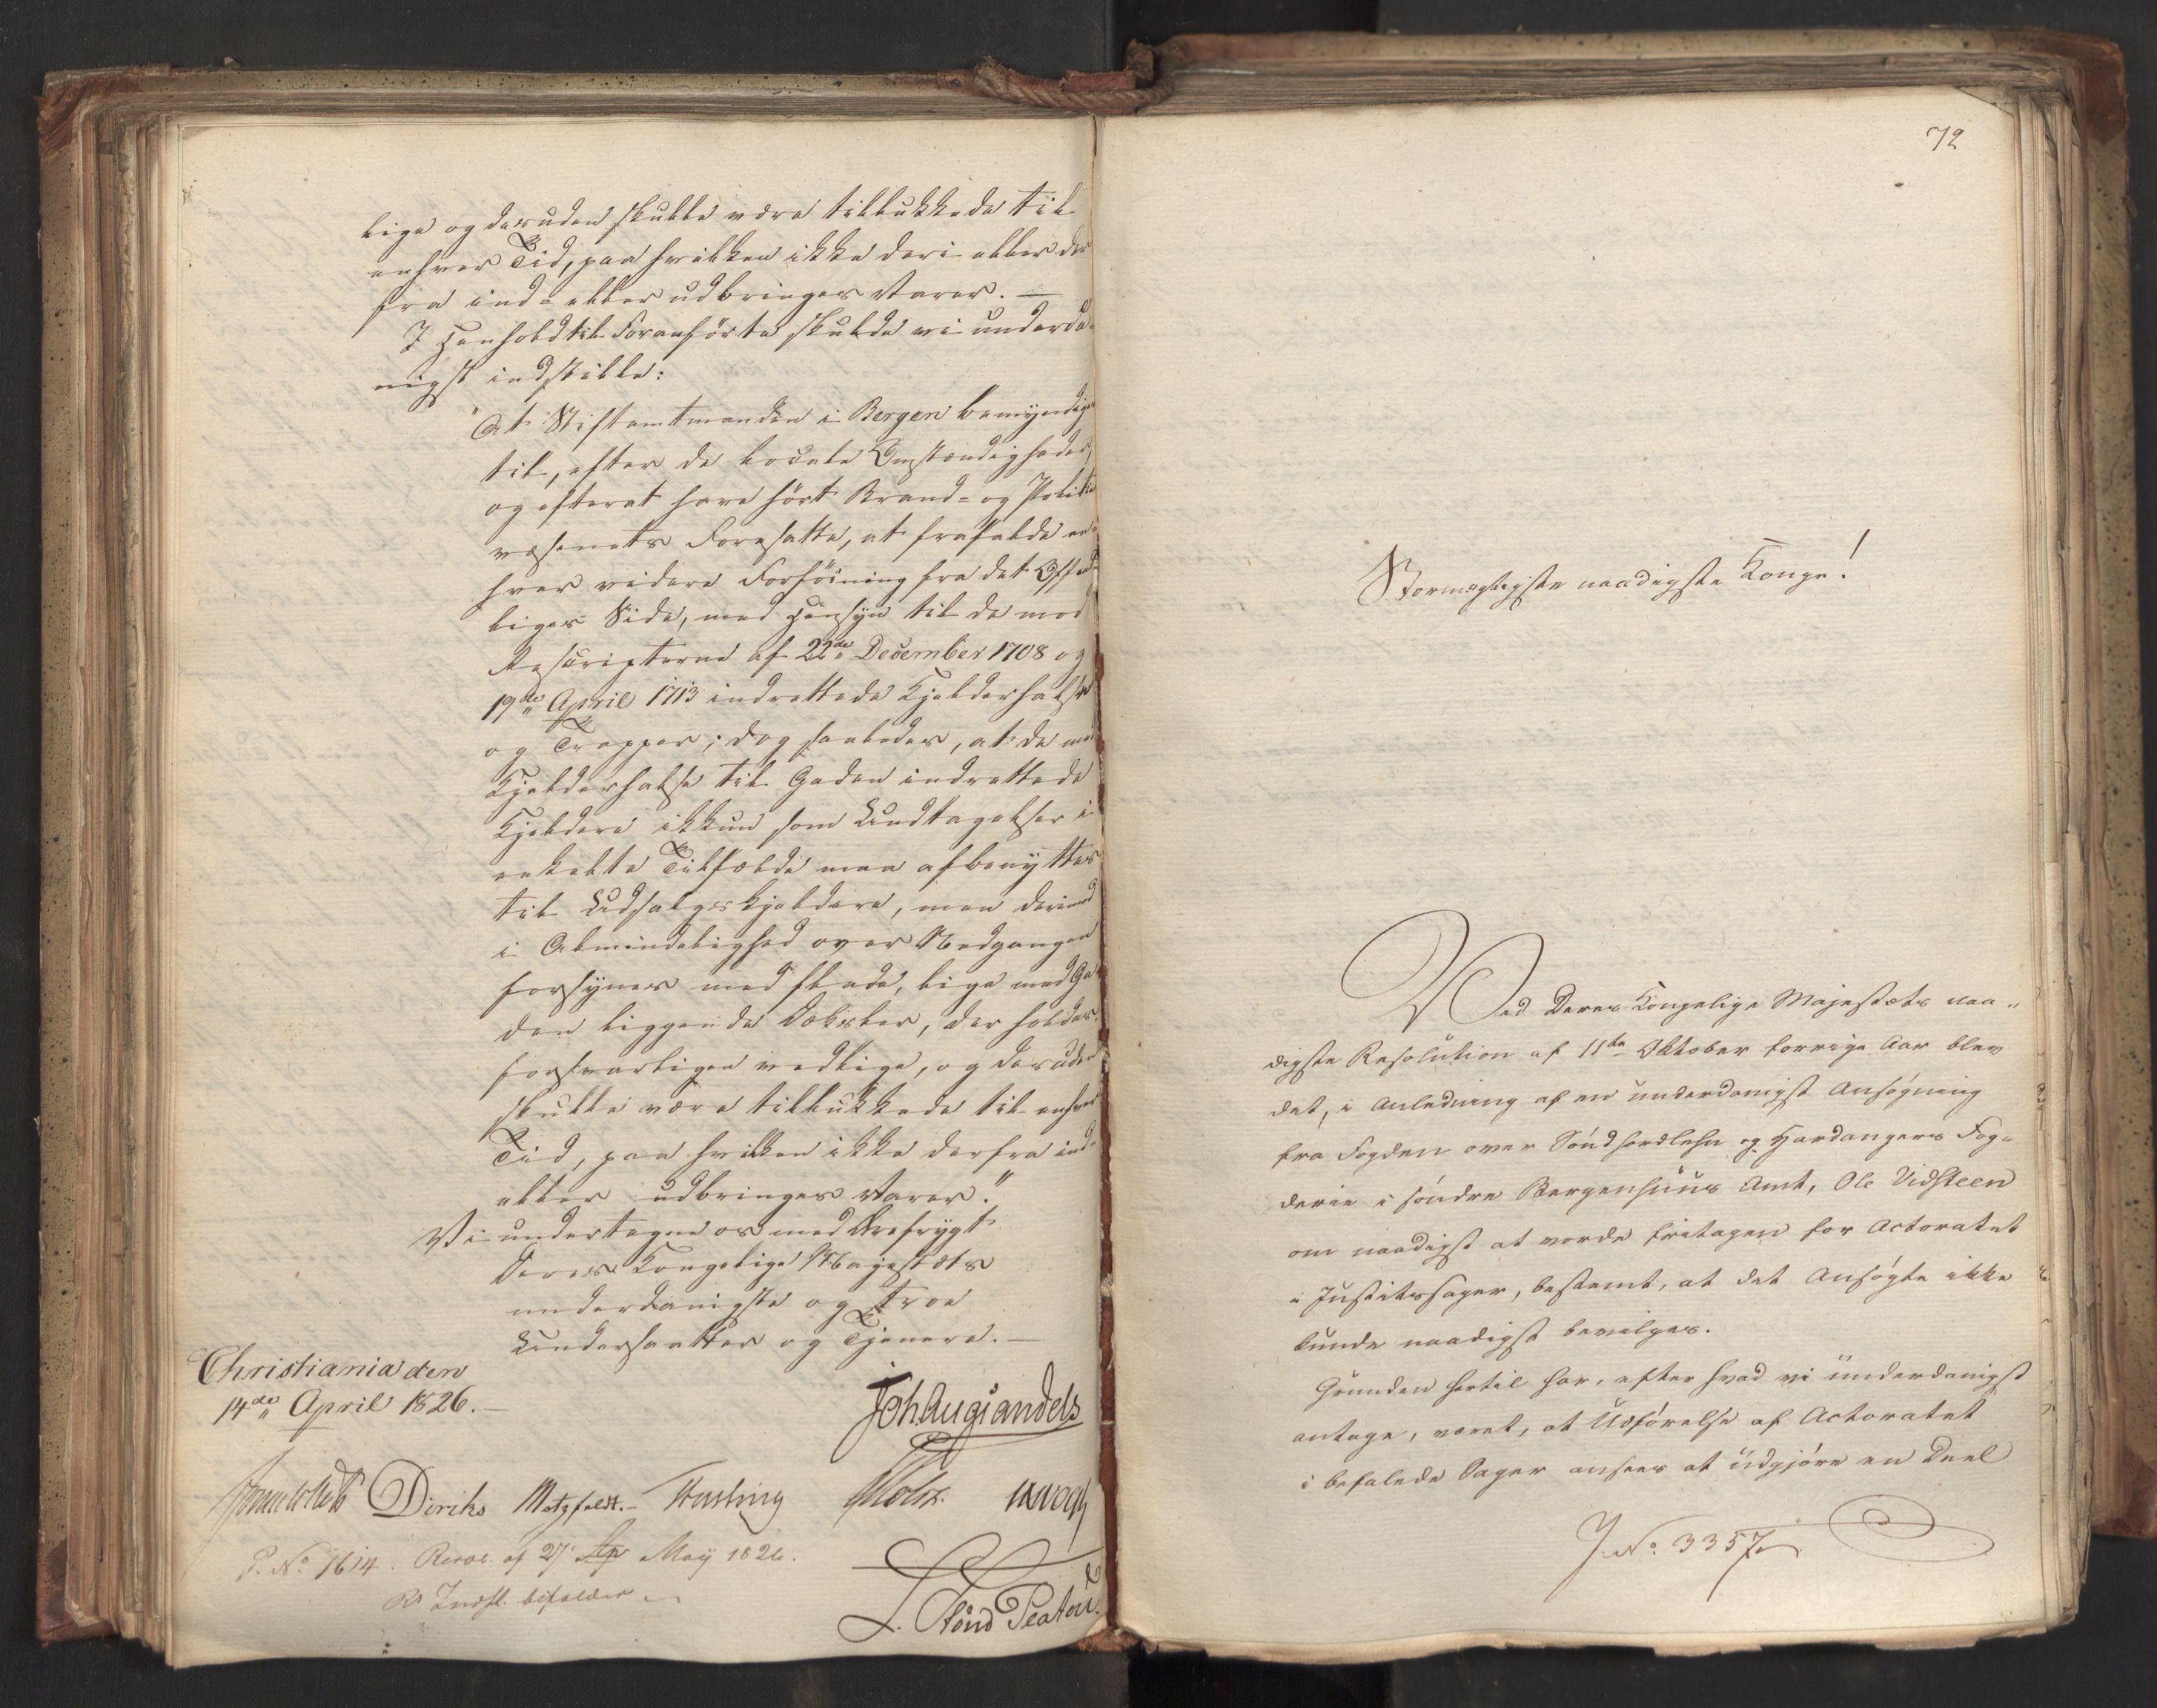 lige og desuden skulle være tillukkede til
enhver Tid, paa hvilken ikke deri eller der
fra ind- eller udbringes Varer. —
I Henhold til Foranførte skulde vi underda-
nigst indstille:
"At Stiftamtmanden i Bergen bemyndiges
til, efter de locale Omstændigheder,
og efterat have hørt Brand- og Politie
væsenets Foresatte, at frafalde en-
hver videre Forføining fra det Offent-
liges Side, med Hensyn til de mod
Rescripterne af 22de December 1708 og
19de April 1713 indrettede Kjelderhalse
og Trapper; dog saaledes, at de med
Kjelderhalse til Gaden indrettede
Kjeldere ikkun som Undtagelser i
enkelte Tilfælde maa afbenyttes
til Udsalgskjeldere, men derimod
i Almindelighed over Nedgangen
forsynes med flade, lige med Ga-
den liggende Dæksler, der holdes
forsvarligen vedlige, og desuden
skulle være tillukkede til enhver
Tid, paa hvilken ikke derfra ind-
eller udbringes Varer."
Vi undertegne os med Ærefrygt
Deres Kongelige Majestæts
underdanigste og troe
Undersaatter og Tjenere. —
Christiania den
14de April 1826. —
Joh Aug Sandels
Diriks Motzfeldt. Fasting Holst. Vogt
P. No 1614. Resol. af 27 May 1826.
Rs Indst. bifaldes
L. Stoud Platou
72
Stormægtigste naadigste Konge!
Ved Deres Kongelige Majestæts naa-
digste Resolution af 11te Oktober forrige Aar blev
det, i Anledning af en underdanigst Ansøgning
fra Fogden over Søndhordlehn og Hardangers Fog-
derie i søndre Bergenhuus Amt, Ole Vidsteen
om naadigst at vorde fritagen for Actoratet
i Justitssager, bestemt, at det Ansøgte ikke
kunde naadigst bevilges.
Grunden hertil har, efter hvad vi underdanigst
antage, været, at Udførelse af Actoratet
i befalede Sager ansees at udgjøre en Deel
J. No. 3357